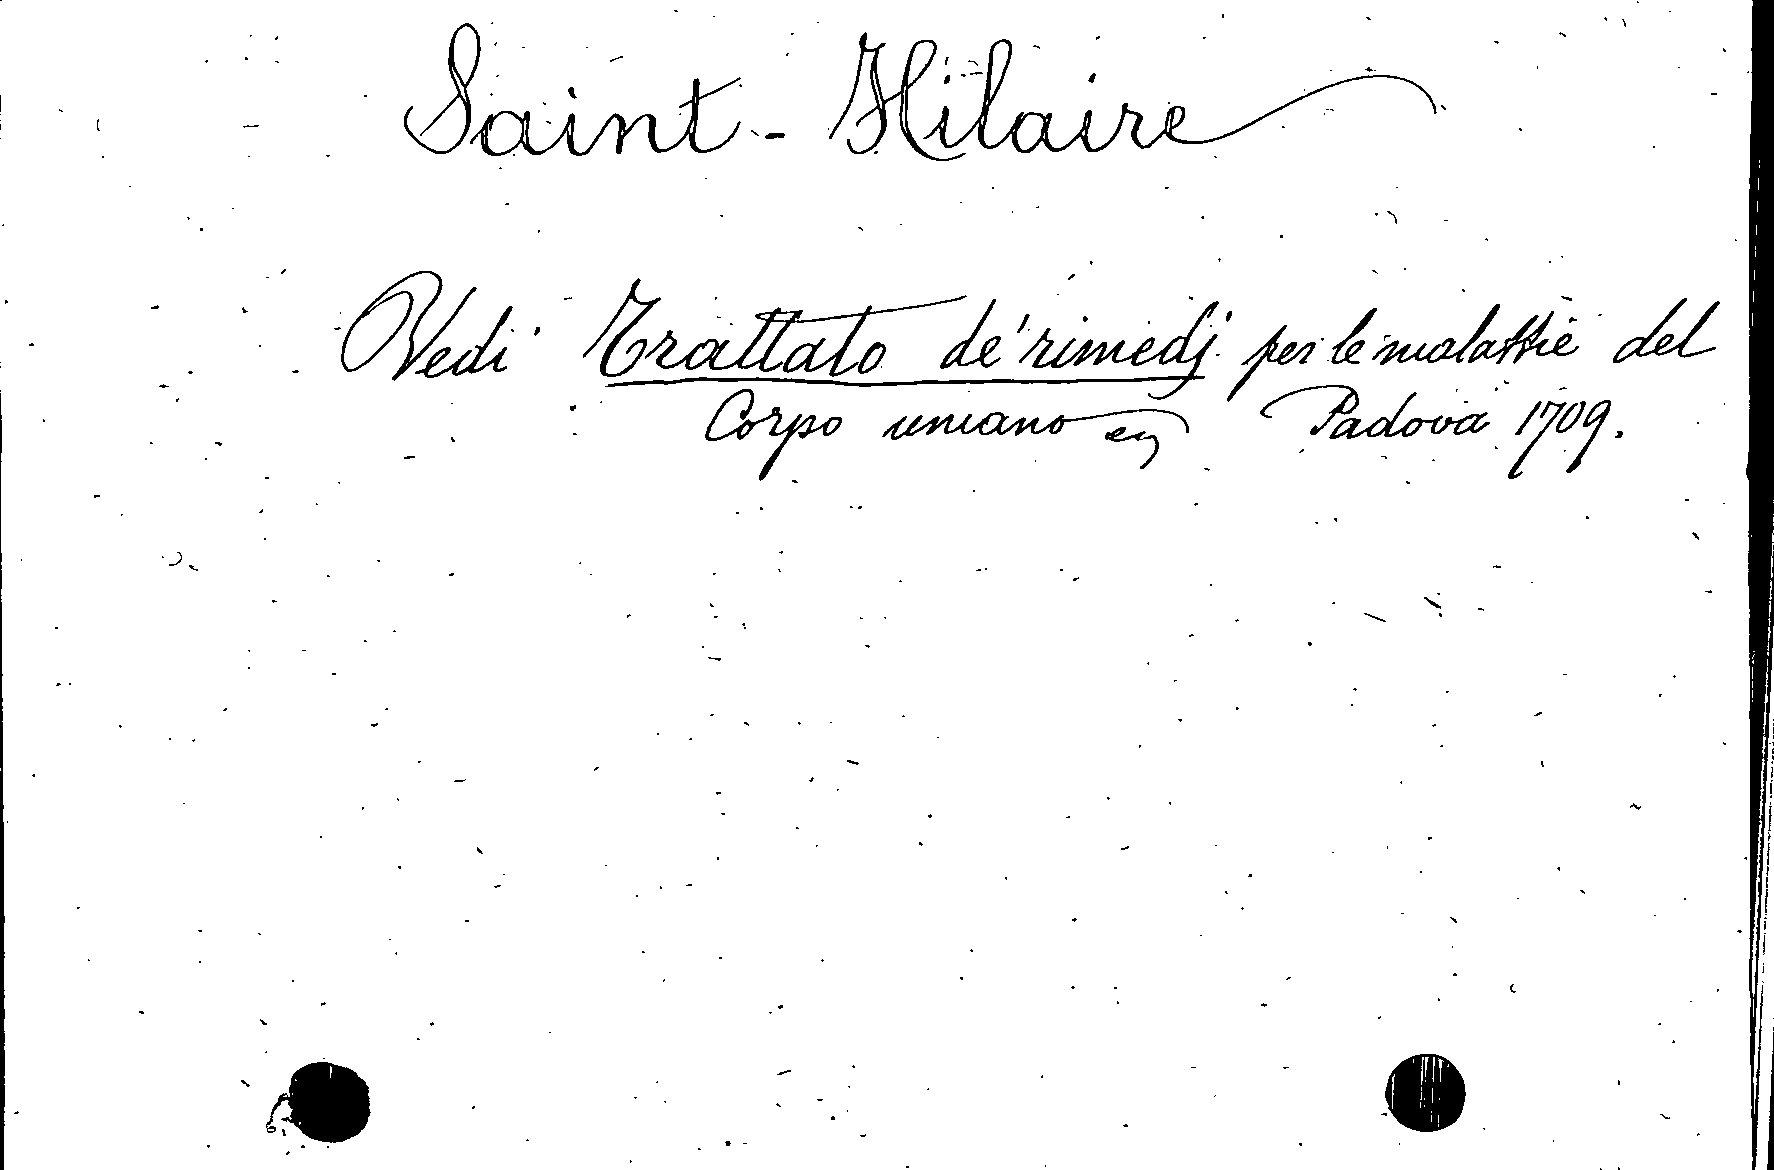 Saint-Hilaire
Vedi Trattato de' rimedj per le malattie del
Corpo umano Padova 1709.